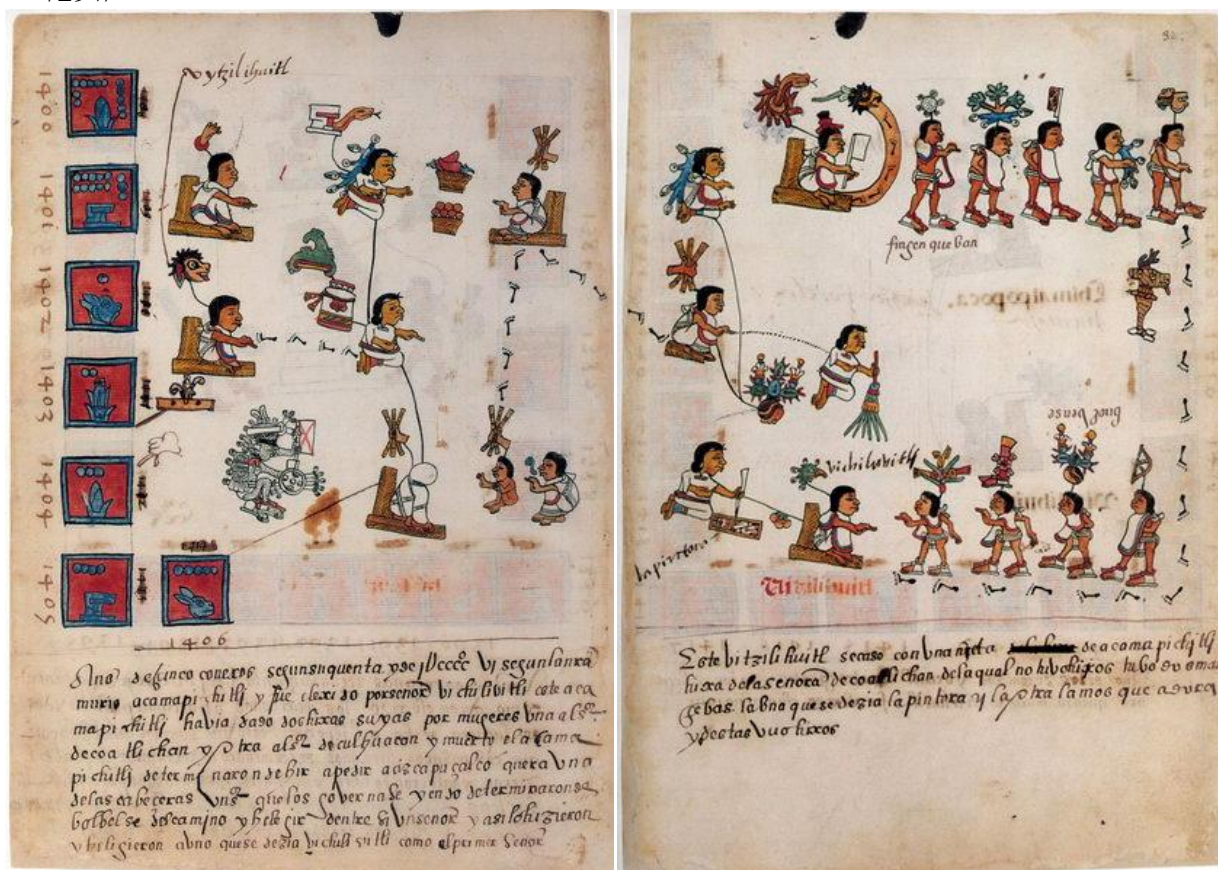 vytzilihuitl
1400
1401
1402
1403
1404
1405
1406
Año de çinco conexos segun su quenta y de iUccccº vi segun la nra
murio acamapichitli y fue elexido por señor vichilivitli este aca
mapichitli havia dado dos hixas suyas por mugeres vna al sr
de coatlichan y otra al sr de culhuacan y muerto el acama
pichitli determinaron de hir a pedir a azcapuçalco quera vna
de las cabeceras vn sr que los governase yendo determinaron de
bolbelse del camino y helegir dentre si vn señor y asi lo hizieron
y heligieron a vno que se dezia vichilivitli como el primer señor
fingen que ban
Chimalpopoca
buelvense
vichilivitli
la pintora
Vitzilihuitl
Este vitzilihuitl se caso con una nieta de acamapichitli
hixa de la señora de coatlichan de la qual no huvo hixos tubo dos man
çebas la vna que se dezia la pintora y la otra
y destas vuo hixos